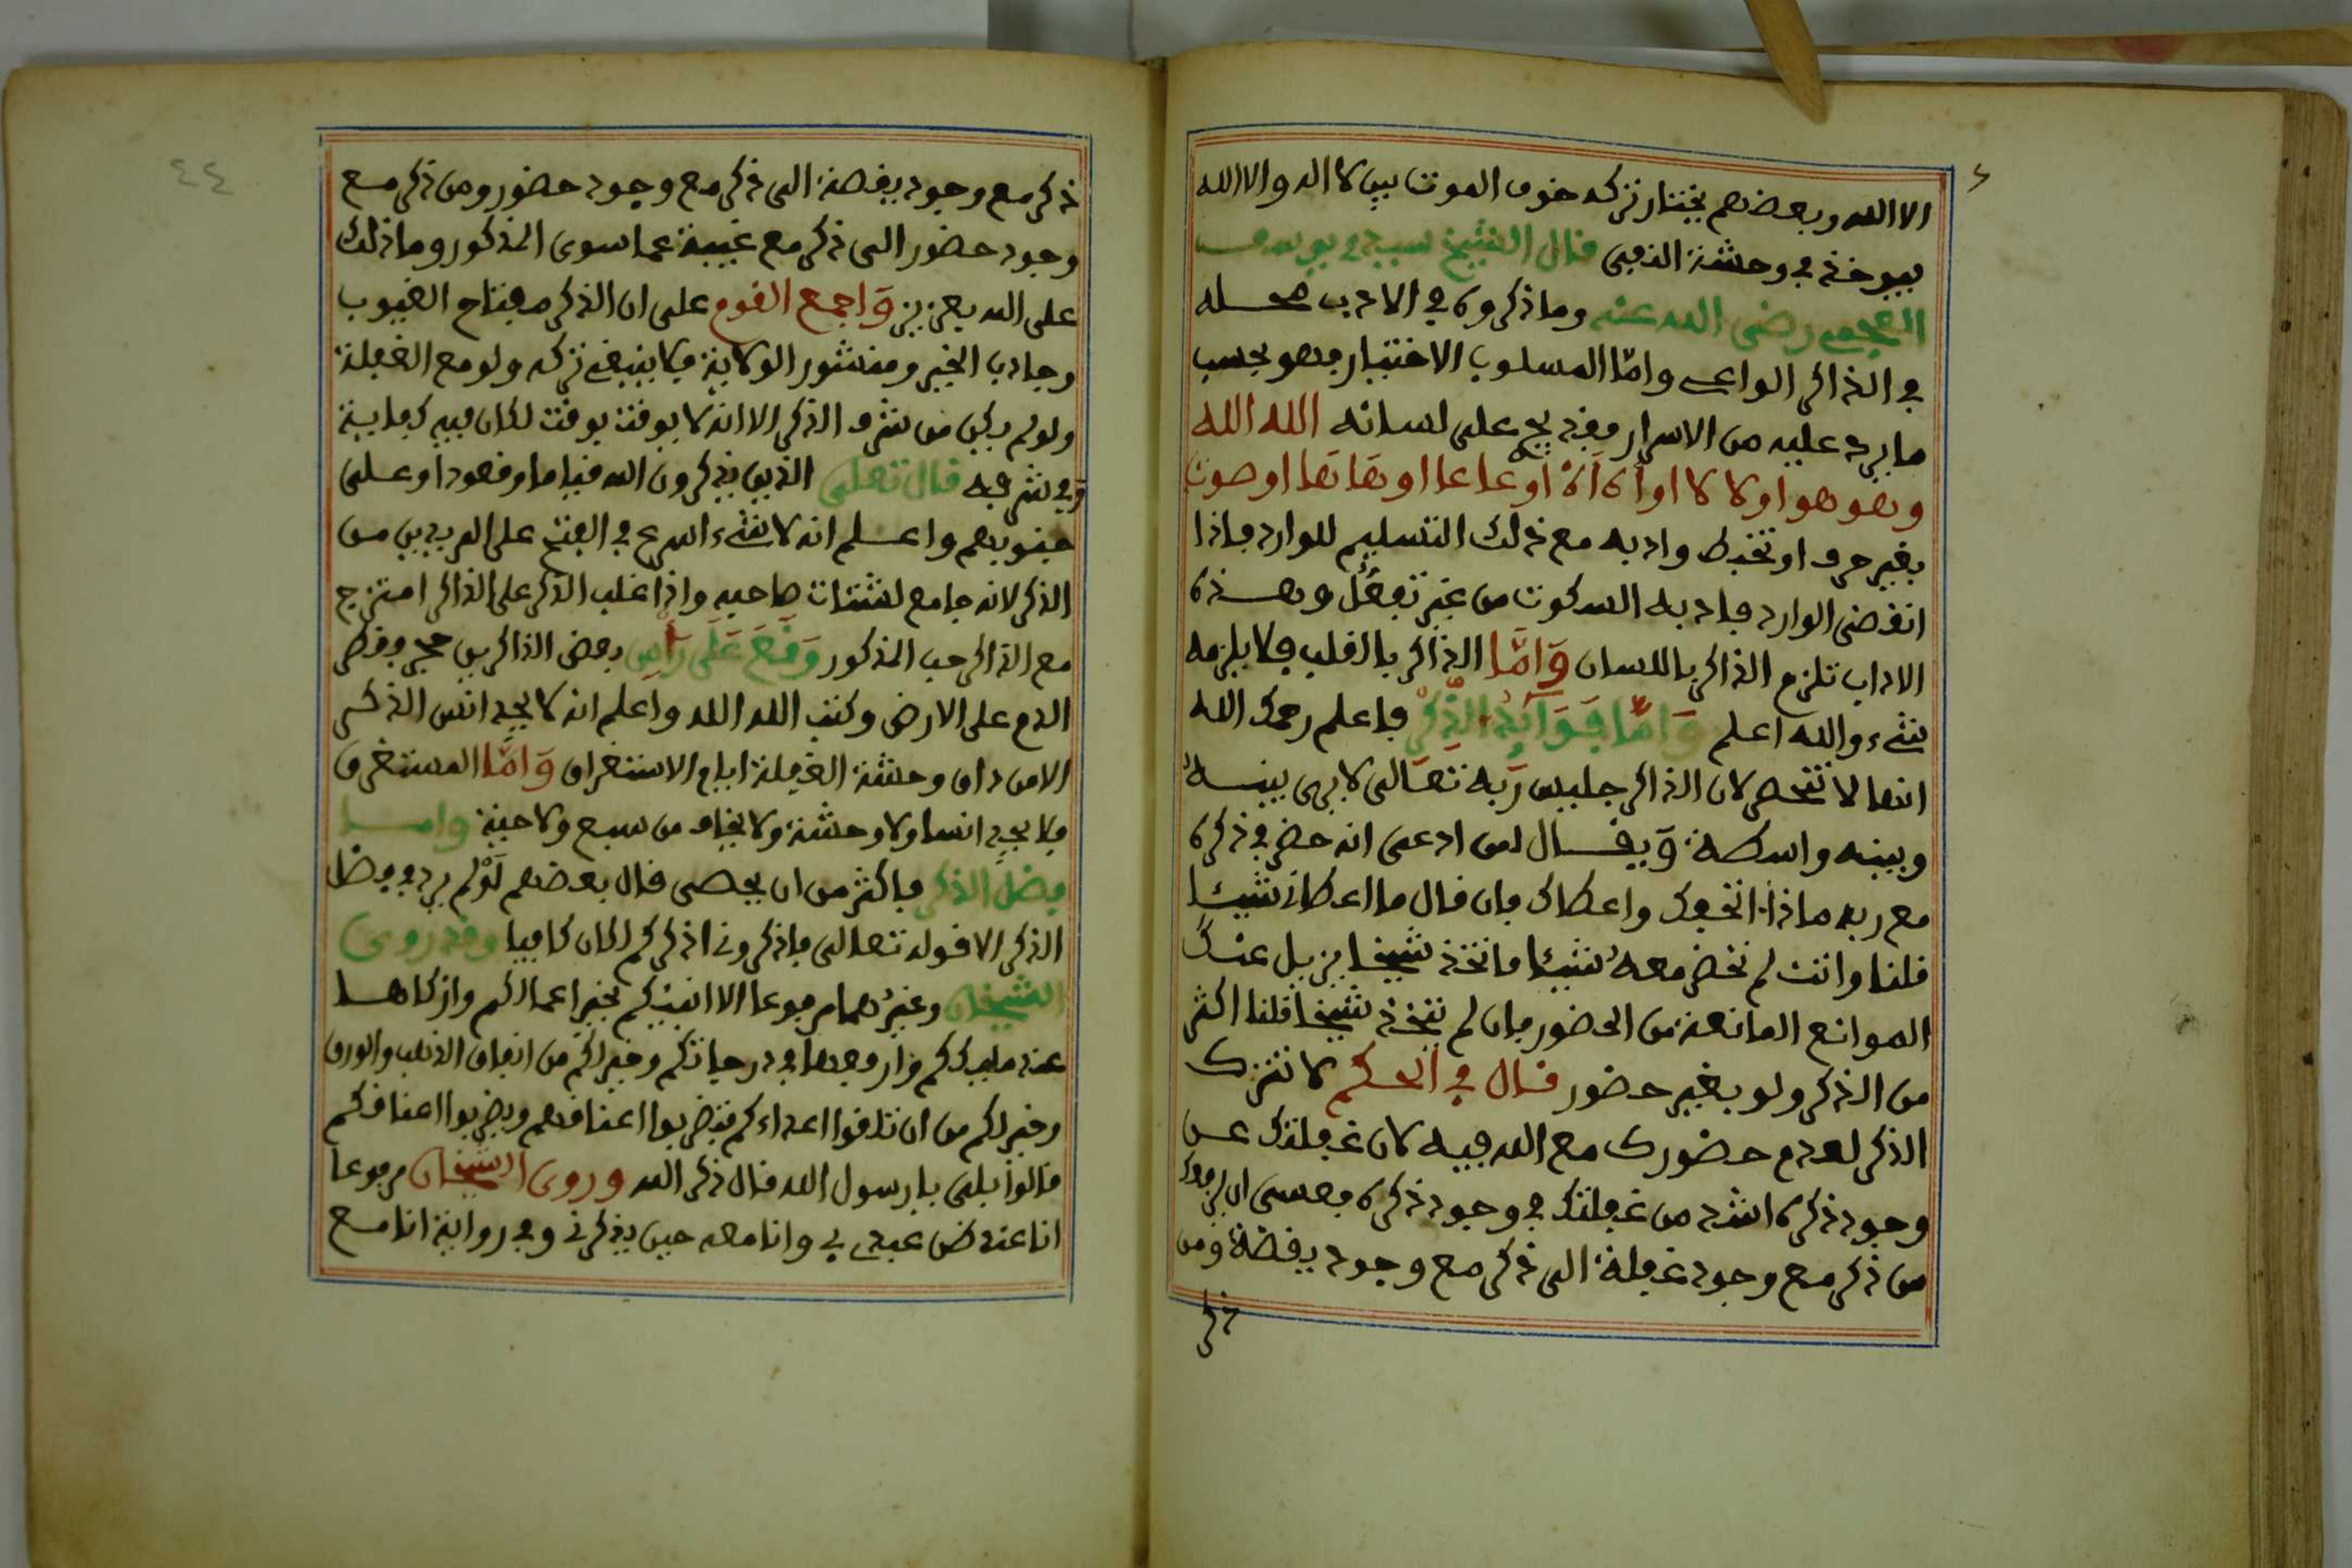 الا الله وبعضهم يختار تركه خوف الموت بين لا اله والا الله
فيوخذ في وحشة النفي قال الشيخ سيدي يوسف
العجمي رضي الله عنه وما ذكروه في الادب محله
في الذاكر الواعي واما المسلوب الاختيار فهو بحسب
ما يرد عليه من الاسرار فقد يجري على لسانه الله الله
وهو هو او لا لا او أه أه او عا عا او ها ها او صوت
بغير حرف او تخبط وادبه مع ذلك التسليم للوارد فاذا
انقضى الوارد فادبه السكوت من غير تفعل وهذه
الاداب تلزم الذاكر باللسان وَاَمَّا الذاكر بالقلب فلا يلزمه
شيء والله اعلم وَاَمَّا فَوَائِدُ الذِّكْرِ فاعلم رحمك الله
انها لا تنحصر لان الذاكر جليس ربه تعالى لا يرى بينه
وبينه واسطة ويقال لمن ادعى انه حضر في ذكره
مع ربه ماذا اتحفك واعطاك فان قال ما اعطاني شيئا
قلنا وانت لم تحضر معه شيئا فاتخذ شيخا يزيل عنك
الموانع المانعة من الحضور فان لم يتخذ شيخا قلنا اكثر
من الذكر ولو بغير حضور قال في الحكم لا تترك
الذكر لعدم حضورك مع الله فيه لان غفلتك عن
وجود ذكره اشد من غفلتك في وجود ذكره فعسى ان يرفعك
من ذكر مع وجود غفلة الى ذكر مع وجود يقظة ومن
ذكر
٤٤
ذكر مع وجود يقظة الى ذكر مع وجود حضور ومن ذكر مع
وجود حضور الى ذكر مع غيبة عما سوى المذكور وما ذلك
على الله بعزيز وَاجمع القوم على ان الذكر مفتاح الغيوب
وجاذب الخير ومنشور الولاية فلا ينبغي تركه ولو مع الغفلة
ولو لم يكن من شرف الذكر الا انه لا يوقت بوقت لكان فيه كفاية
في شرفه قال تعلى الذين يذكرون الله قياما وقعودا وعلى
جنوبهم واعلم انه لا شيء اسرع في الفتح على المريدين من
الذكر لانه جامع لشتات صاحبه واذا غلب الذكر على الذاكر امتزج
مع الذاكر حب المذكور وَقَعَ عَلَى رَأْسِ بعض الذاكرين حجر فقطر
الدم على الارض وكتب الله الله واعلم انه لا يجد انس الذكر
الا من ذاق وحشة الغفلة اما في الاستغراق وَاَمَّا المستغرق
فلا يجد انسا ولا وحشة ولا يخاف من سبع ولا حية واما
فضل الذكر فاكثر من ان يحصى قال بعضهم لَوْلم يرد في فضل
الذكر الا قوله تعالى فاذكروني اذكركم لكان كافيا وقد روى
الشيخان وغيرهما مرفوعا الا انبئكم بخير اعمالكم وازكاها
عند مليككم وارفعها في درجاتكم وخير لكم من انفاق الذهب والورق
وخير لكم من ان تلقوا اعداءكم فتضربوا اعناقهم ويضربوا اعناقكم
قالوا بلى يا رسول الله قال ذكر الله وروى الشيخان مرفوعا
انا عند ظن عبدي بي وانا معه حين يذكرني وفي رواية انا مع